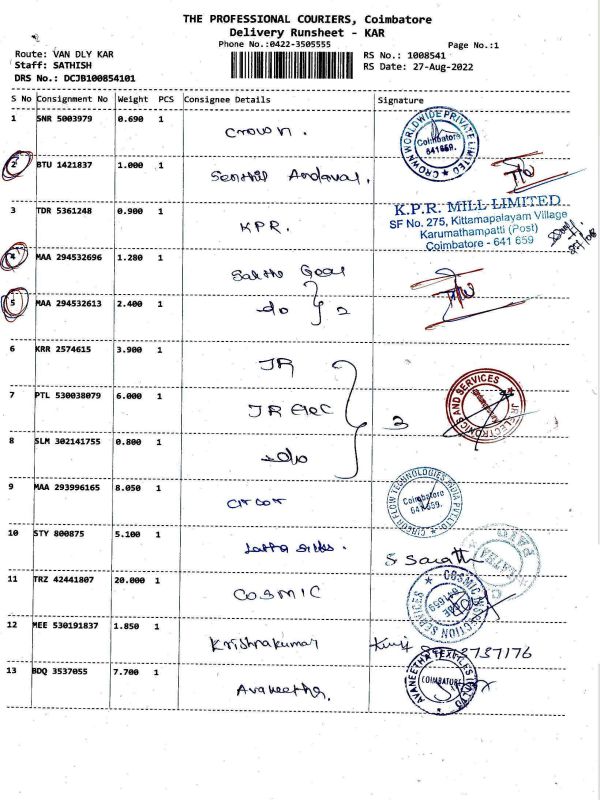 THE PROFESSIONAL COURIERS, Coimbatore
Delivery Runsheet - KAR
Phone No.:0422-3505555
Page No.:1
Route: VAN DLY KAR
RS No.: 1008541
Staff: SATHISH
RS Date: 27-Aug-2022
DRS No.: DCJB100854101
S No Consignment No Weight PCS Consignee Details Signature
1 SNR 5003979 0.690 1 Crown.
CROWN WORLDWIDE PRIVATE LIMITED
Coimbatore
641659.
2 BTU 1421837 1.000 1 Senthil Andavar.
3 TDR 5361248 0.900 1 KPR.
K.P.R. MILL LIMITED
SF No. 275, Kittamapalayam Village
Karumathampatti (Post)
Coimbatore - 641 659
4 MAA 294532696 1.280 1 Sakthi Gear
5 MAA 294532613 2.400 1 do } 2
6 KRR 2574615 3.900 1 JR
7 PTL 530038079 6.000 1 JR Elec } 3
JR ELECTRONICS AND SERVICES
8 SLM 302141755 0.800 1 do
9 MAA 293996165 8.050 1
TECHNOLOGIES INDIA PVT LTD
Coimbatore
641 659.
10 STY 800875 5.100 1
S Sarath
11 TRZ 42441807 20.000 1 COSMIC
COSMIC INSPECTION SERVICES
641659
12 MEE 530191837 1.850 1 Krishnakumar
13 BDQ 3537055 7.700 1 Avaneetha.
AVANEETHA TEXTILES (P) LTD
COIMBATORE